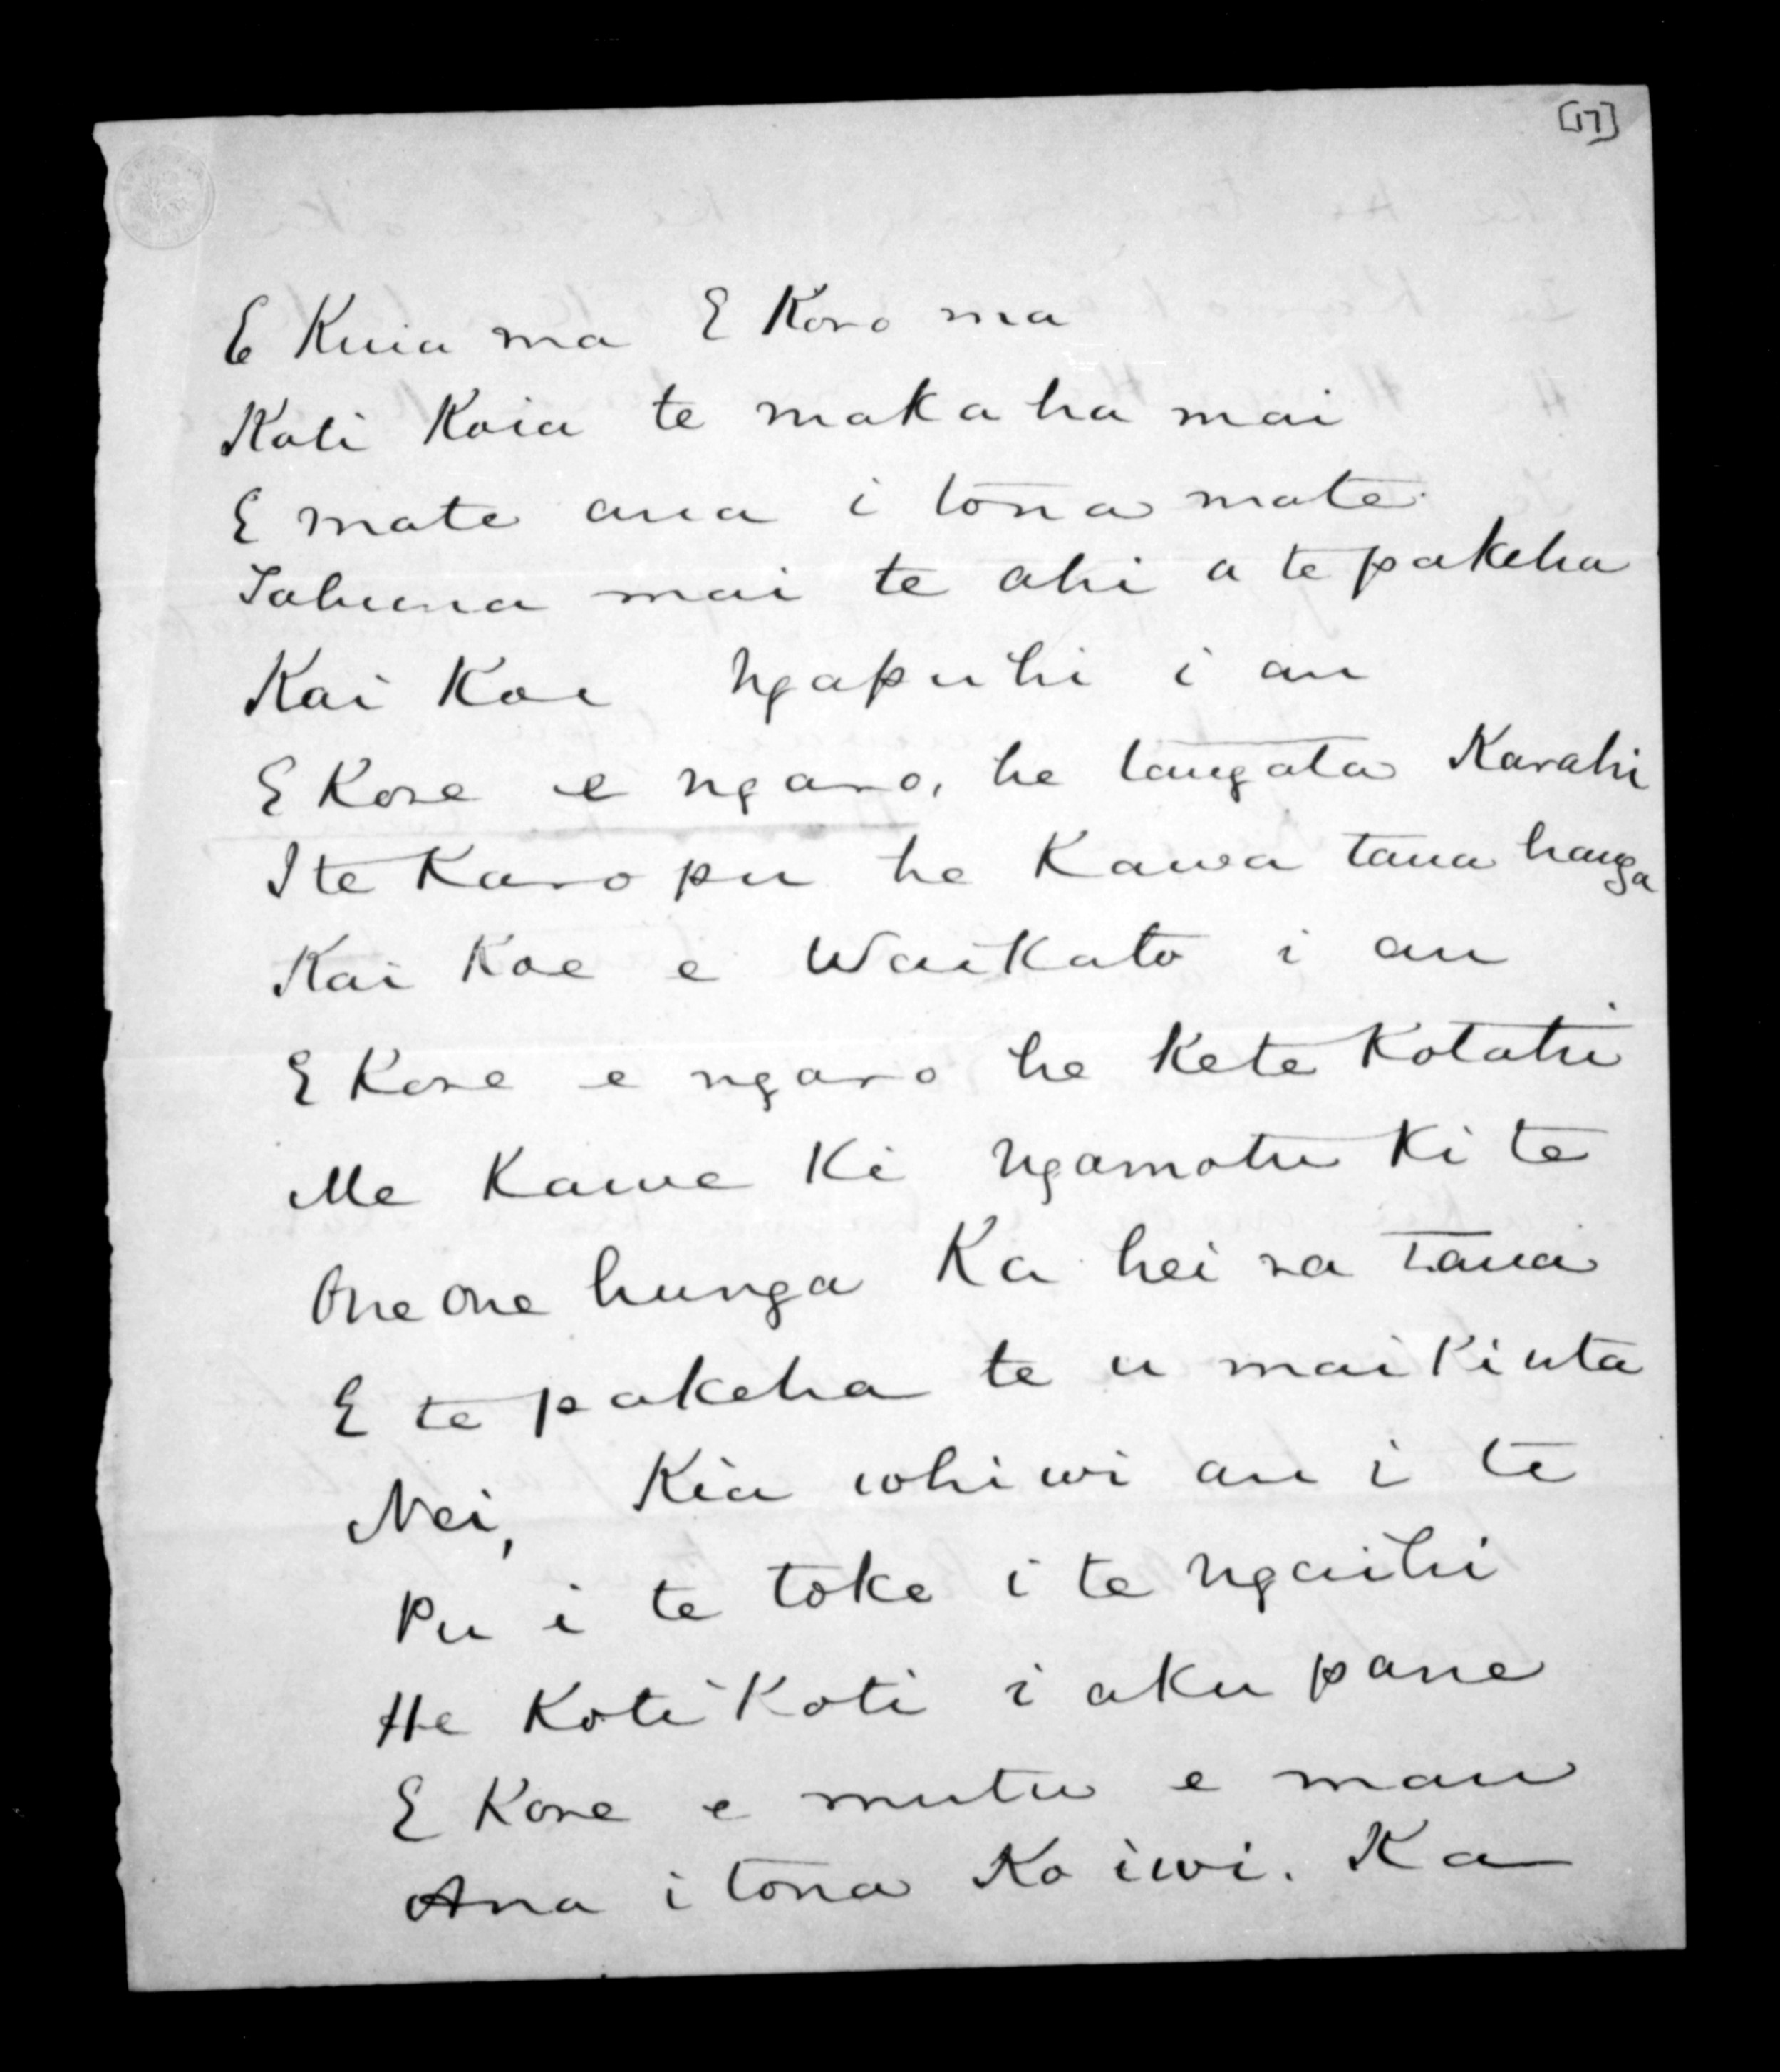 [17]
E Kuia ma E Koro ma
Kati Koia te makaha mai
E mate ana i tona mate
Tahuna mai te ahi a te pakeha
Kai Koe Ngapuhi i au
E Kore e ngaro, he tangata Karahi
I te Karo pu he Kawa tana hanga
Kai Koe e Waikato i au
E Kore e ngaro he Kete Kotahi
Me Kawe Ki Ngamotu Ki te
One one hunga Ka hei ra taua
E te pakeha te u mai Ki uta
Nei, Kia whiwi au i te
Pu i te toke i te ngaihi
He Koti Koti i aku pane
E Kore e mutu e mau
Ana i tona Ko iwi. Ka